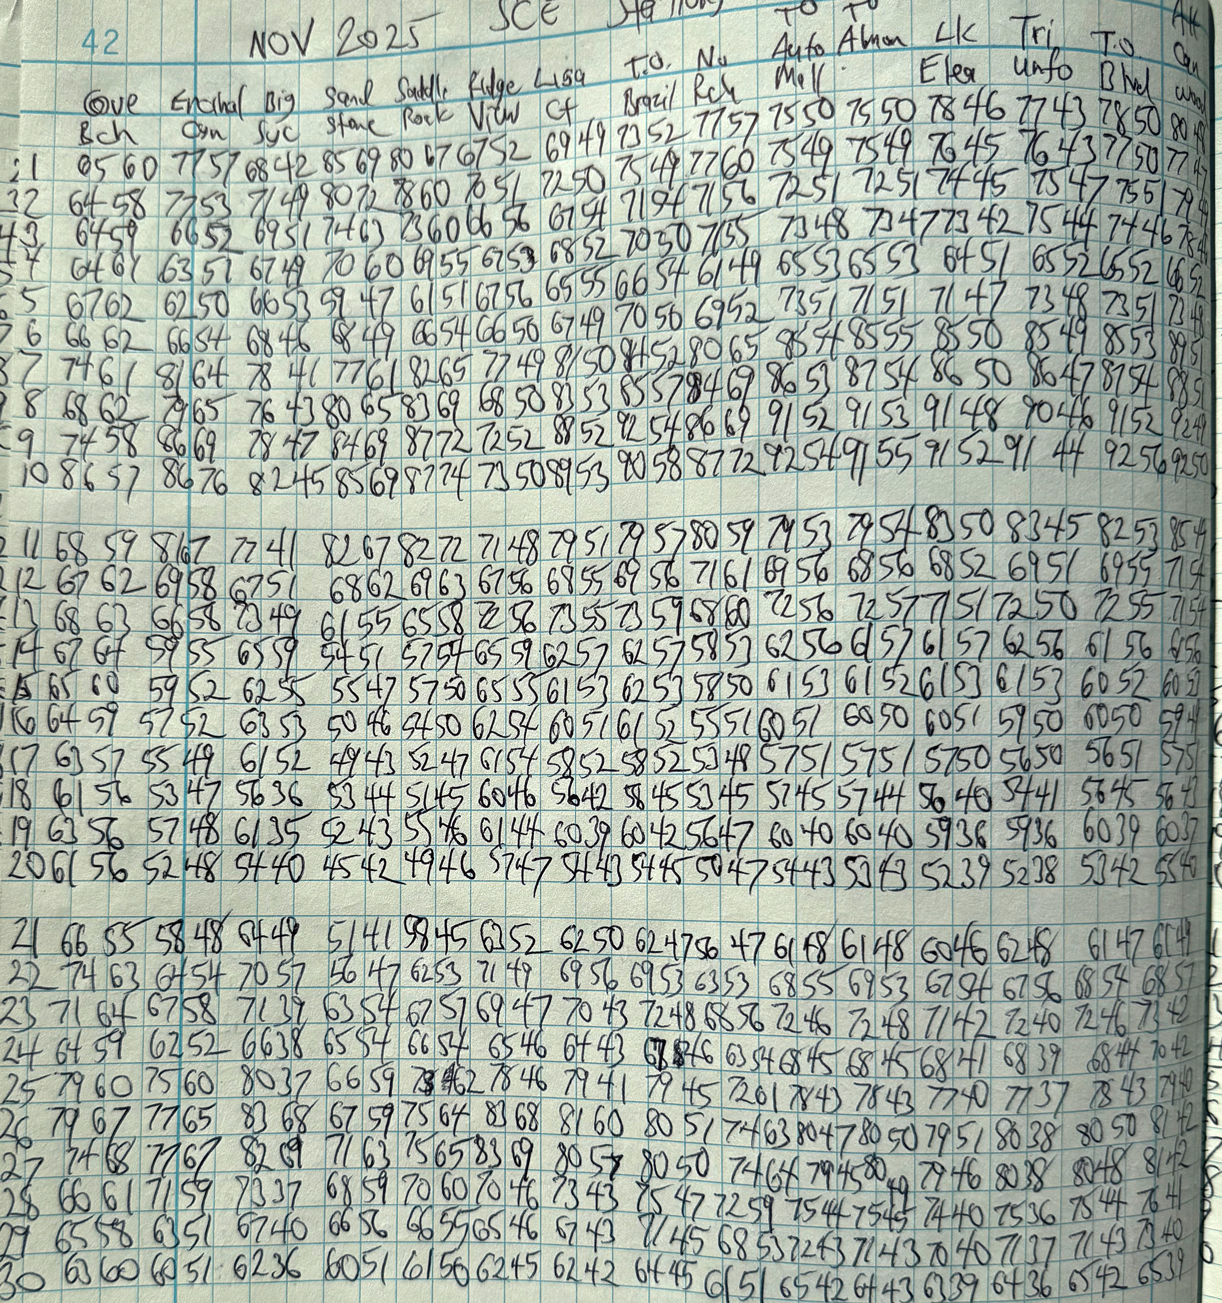 42 NOV 2025 SCE
Cove Bch Encinal Cyn Big Syc Sand Stone Saddle Rock Ridge View Lisa Ct T.O. Brazil No Rch TO Auto Mall TO Lk Elea Tri Unfo T.O. Blvd
1 65 60 77 57 68 42 85 69 80 67 67 52 69 49 73 52 77 57 75 50 75 50 78 46 77 43 78 50
2 64 58 77 53 71 49 80 72 78 60 70 51 72 50 75 49 77 60 75 49 75 49 76 45 76 43 77 50
3 64 59 66 52 69 51 74 63 73 60 66 56 67 54 71 54 71 56 72 51 72 51 74 45 75 47 75 51
4 64 61 63 51 67 49 70 60 69 55 67 53 68 52 70 50 71 55 73 48 73 47 73 42 75 44 74 46
5 67 62 62 50 66 53 59 47 61 51 67 56 65 55 66 54 61 49 65 53 65 53 64 51 65 52 65 52 66 52
6 66 62 66 54 68 46 68 49 66 54 66 50 67 49 70 50 69 52 73 51 71 51 71 47 73 48 73 51 73 48
7 74 61 81 64 78 41 77 61 82 65 77 49 81 50 84 52 80 65 85 54 85 55 85 50 85 49 85 53 89 51
8 68 62 79 65 76 43 80 65 83 69 68 50 83 53 85 57 84 69 86 53 87 54 86 50 86 47 87 54 88 51
9 74 58 86 69 78 47 84 69 87 72 72 52 88 52 92 54 86 69 91 52 91 53 91 48 90 46 91 52 92 49
10 86 57 86 76 82 45 85 69 87 74 73 50 89 53 90 58 87 72 92 54 91 55 91 52 91 44 92 56 92 50
11 68 59 81 67 77 41 82 67 82 72 71 48 79 51 79 57 80 59 79 53 79 54 83 50 83 45 82 53 85 49
12 67 62 69 58 67 51 68 62 69 63 67 56 68 55 69 56 71 61 69 56 68 56 68 52 69 51 69 55 71 54
13 68 63 66 58 73 49 61 55 65 58 72 56 73 55 73 59 68 60 72 56 72 57 71 51 72 50 72 55 71 54
14 67 64 59 55 65 59 54 51 57 54 65 59 62 57 62 57 58 53 62 56 61 57 61 57 62 56 61 56 61 56
15 65 60 59 52 62 55 55 47 57 50 65 55 61 53 62 53 58 50 61 53 61 52 61 53 61 53 60 52 60 53
16 64 59 57 52 63 53 50 46 54 50 62 54 60 51 61 52 55 51 60 51 60 50 60 51 59 50 60 50 59
17 63 57 55 49 61 52 49 43 52 47 61 54 58 52 58 52 53 48 57 51 57 51 57 50 56 50 56 51 57 51
18 61 56 53 47 56 36 53 44 51 45 60 46 56 42 58 45 53 45 57 45 57 44 56 40 54 41 56 45 56 43
19 63 56 57 48 61 35 52 43 55 46 61 44 60 39 60 42 56 47 60 40 60 40 59 36 59 36 60 39 60 37
20 61 56 52 48 54 40 45 42 49 46 57 47 54 43 54 45 50 47 54 43 53 43 52 39 52 38 53 42 55 40
21 66 55 58 48 64 49 51 41 58 45 63 52 62 50 62 47 56 47 61 48 61 48 60 46 62 48 61 47 61 49
22 74 63 64 54 70 57 56 47 62 53 71 49 69 56 69 53 63 53 68 55 69 53 67 54 67 56 68 54 68 57
23 71 64 67 58 71 39 63 54 67 57 69 47 70 43 72 48 68 56 72 46 72 48 71 42 72 40 72 46 73 42
24 64 59 62 52 66 38 65 54 66 54 65 46 64 43 46 63 54 68 45 68 45 68 41 68 39 68 44 70 42
25 79 60 75 60 80 37 66 59 62 78 46 79 41 79 45 72 61 78 43 78 43 77 40 77 37 78 43 79 40
26 79 67 77 65 83 68 67 59 75 64 83 68 81 60 80 51 74 63 80 47 80 50 79 51 80 38 80 50 81 42
27 74 68 77 67 82 69 71 63 75 65 83 69 80 57 80 50 74 64 79 45 80 49 79 46 80 38 80 48 81 42
28 66 61 71 59 73 37 68 59 70 60 70 46 73 43 75 47 72 59 75 44 75 45 74 40 75 36 75 44 76 41
29 65 58 63 51 67 40 66 56 66 55 65 46 67 43 71 45 68 53 72 43 71 43 70 40 71 37 71 43 73 40
30 63 60 60 51 62 36 60 51 61 50 62 45 62 42 64 45 61 51 65 42 64 43 63 39 64 36 65 42 65 39